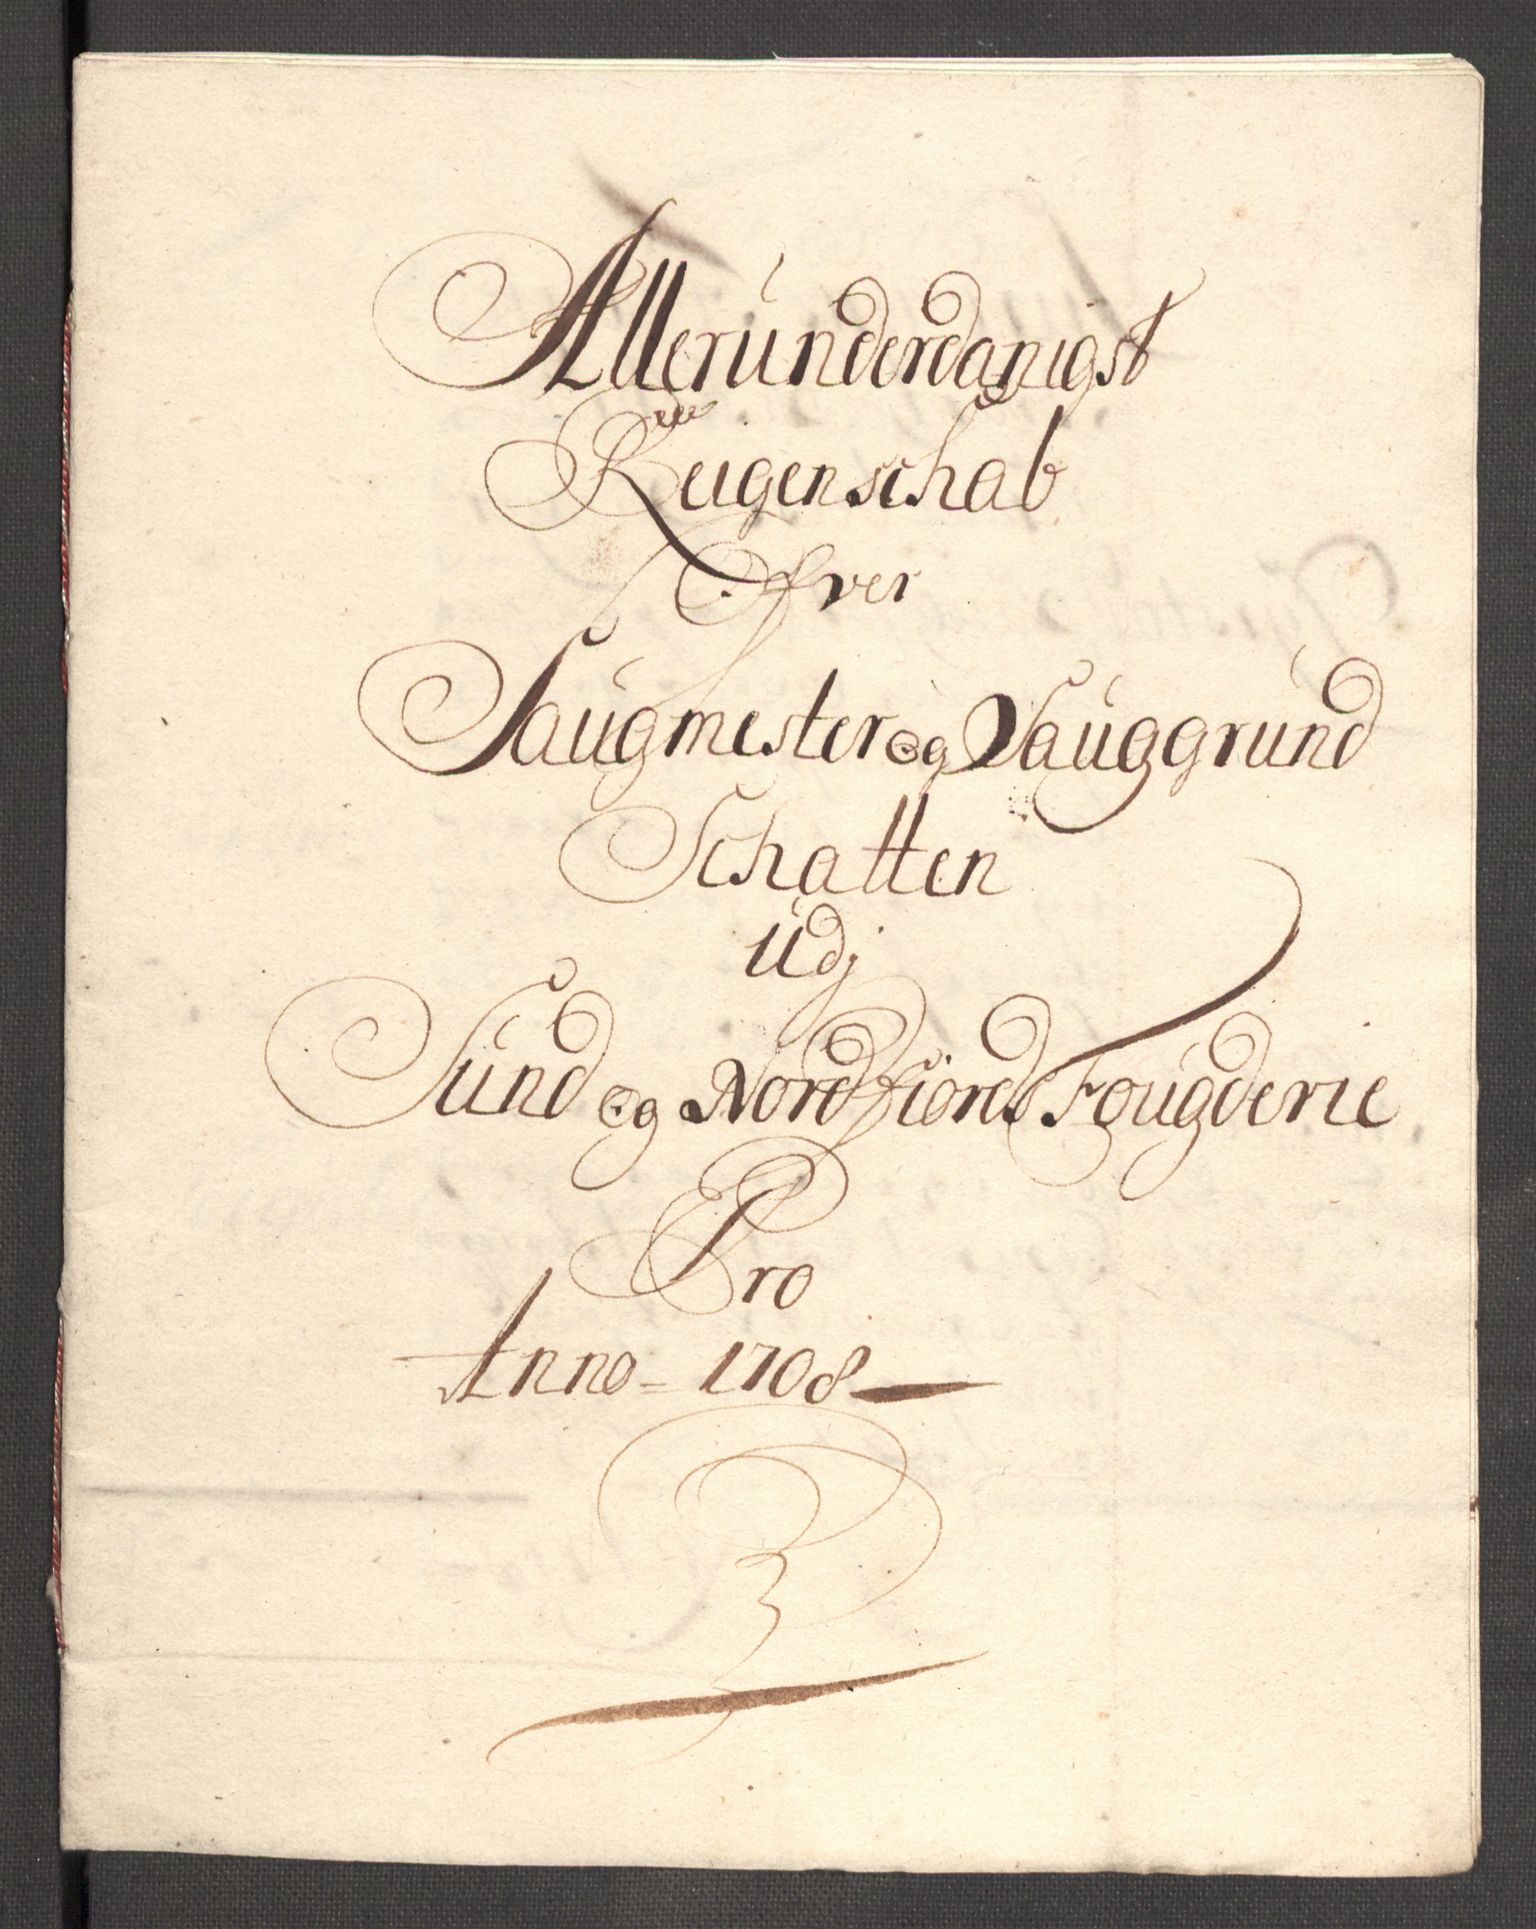 Allerúnderdanigst
Reigenschab
Ofver
Saúgmester og Saúggrúnd
Schatten
Údj
Súnd og Nordfiords Foúgderie
Pro
Anno = 1708